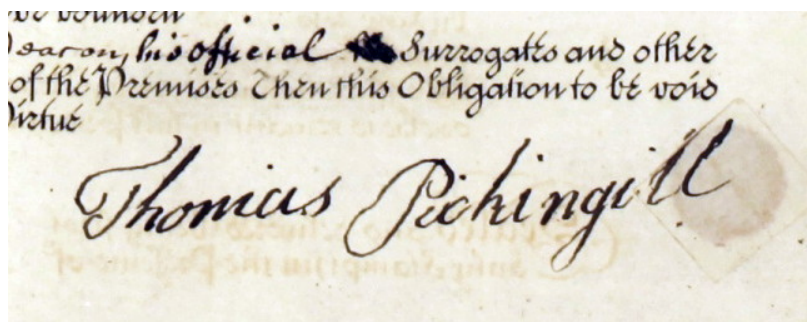 be bounden
Deacon, his official Surrogates and other
of the Premises Then this Obligation to be void
Virtue
Thomas Pickingill